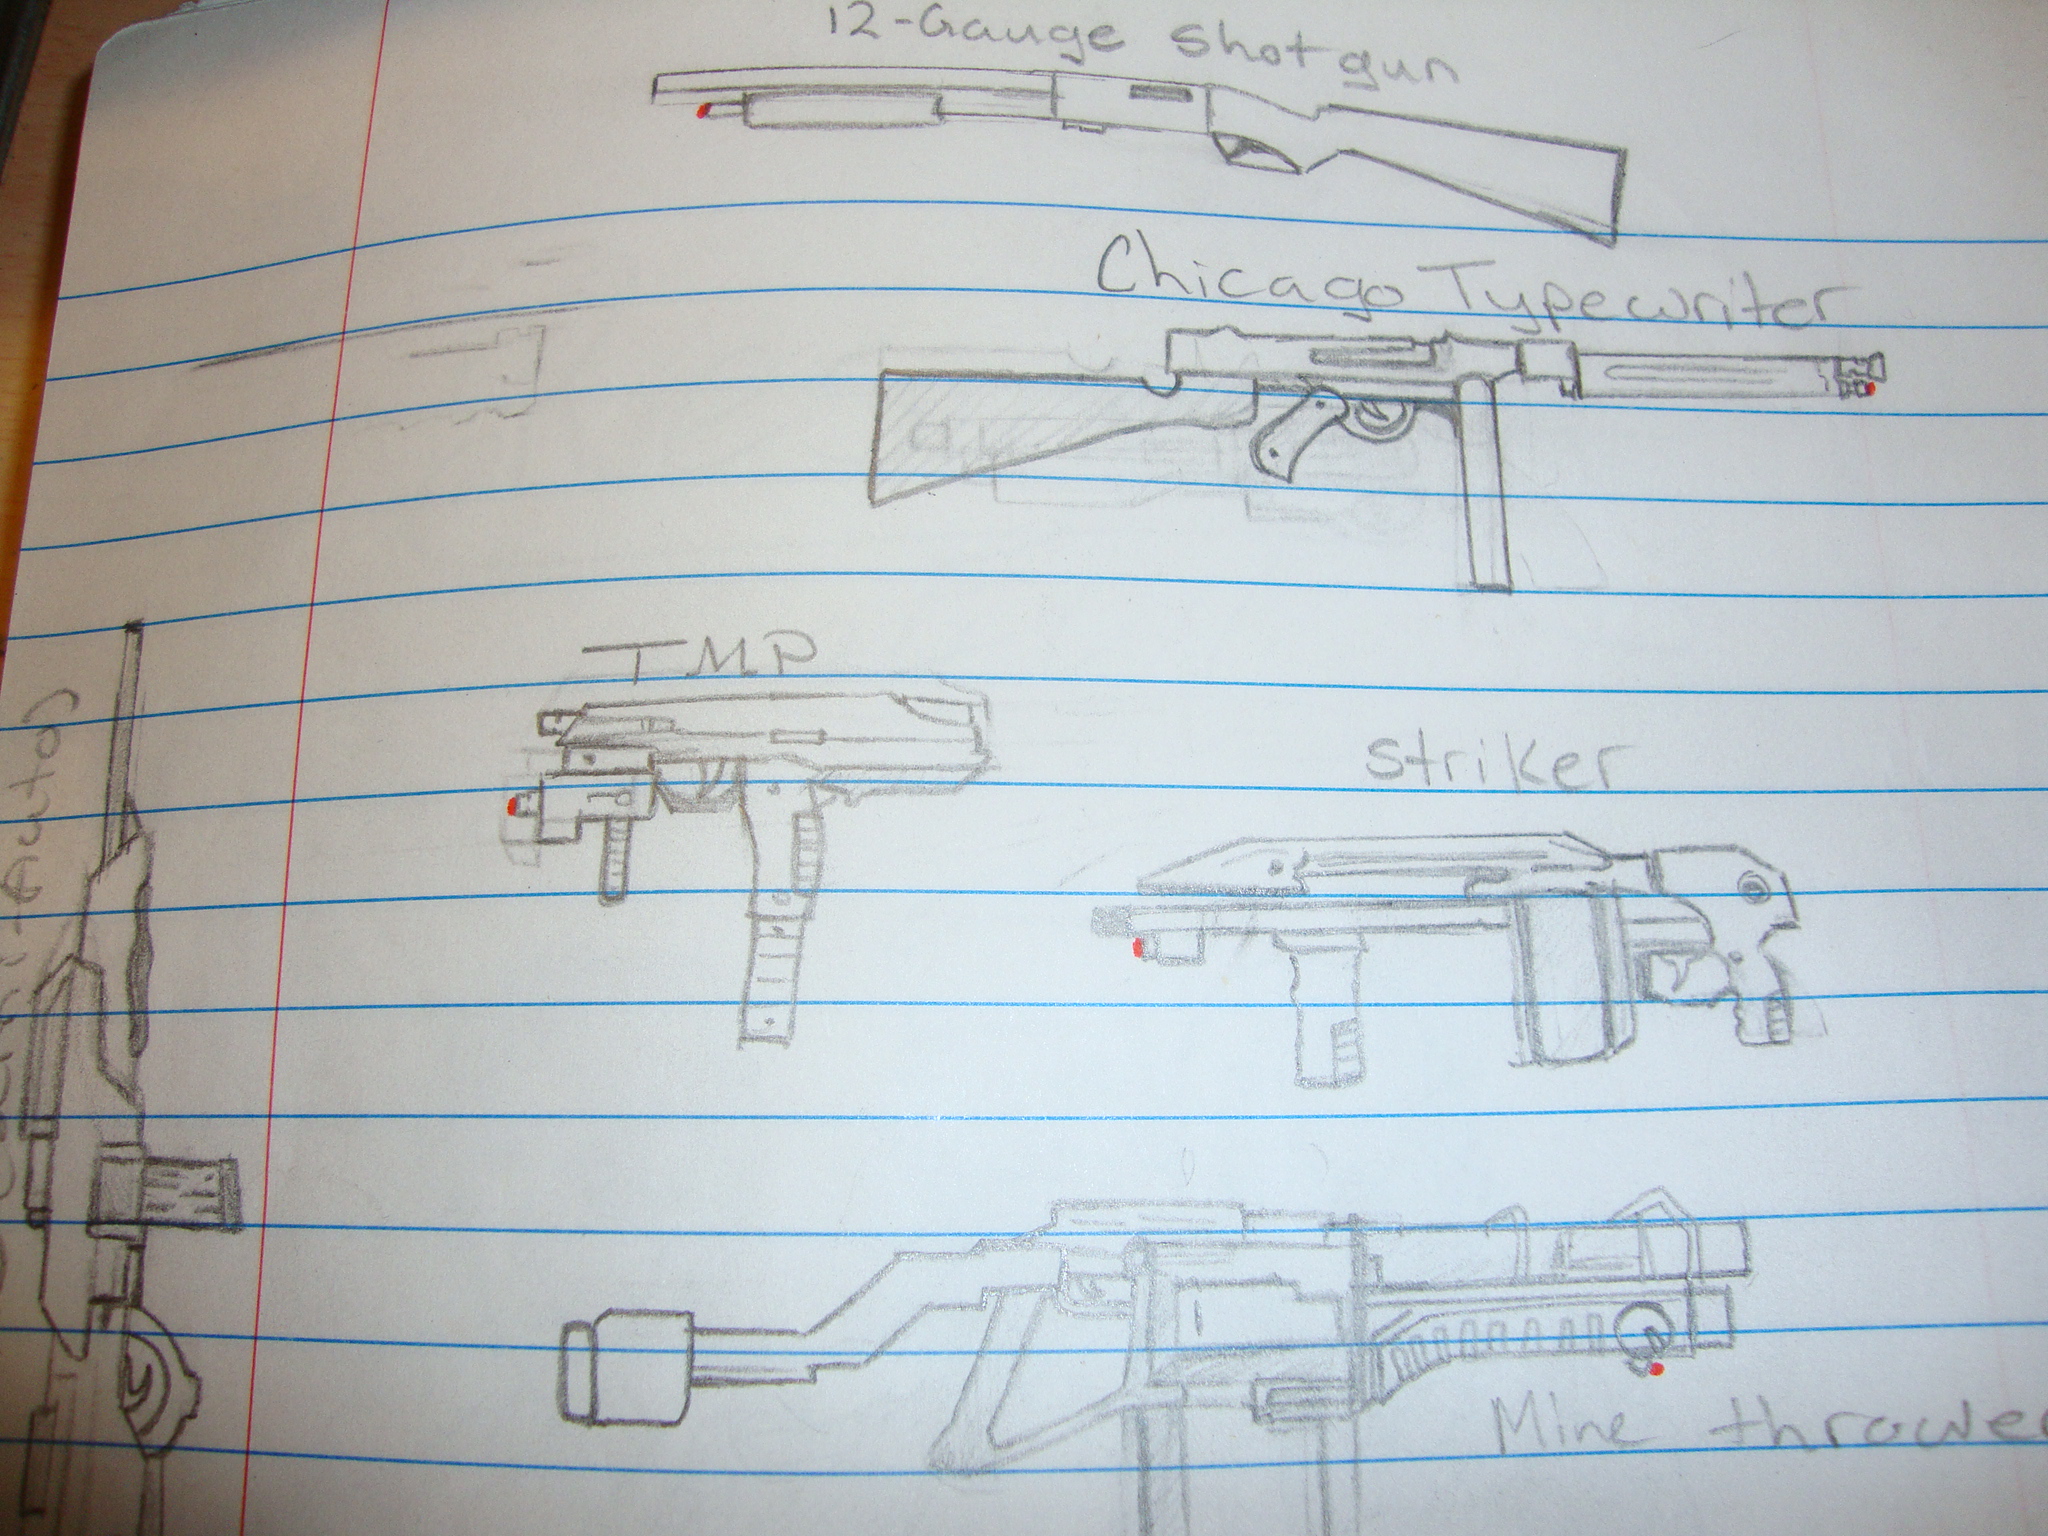 12-Gauge shotgun
Chicago Typewriter
TMP
striker
Mine throwe
-Auto)